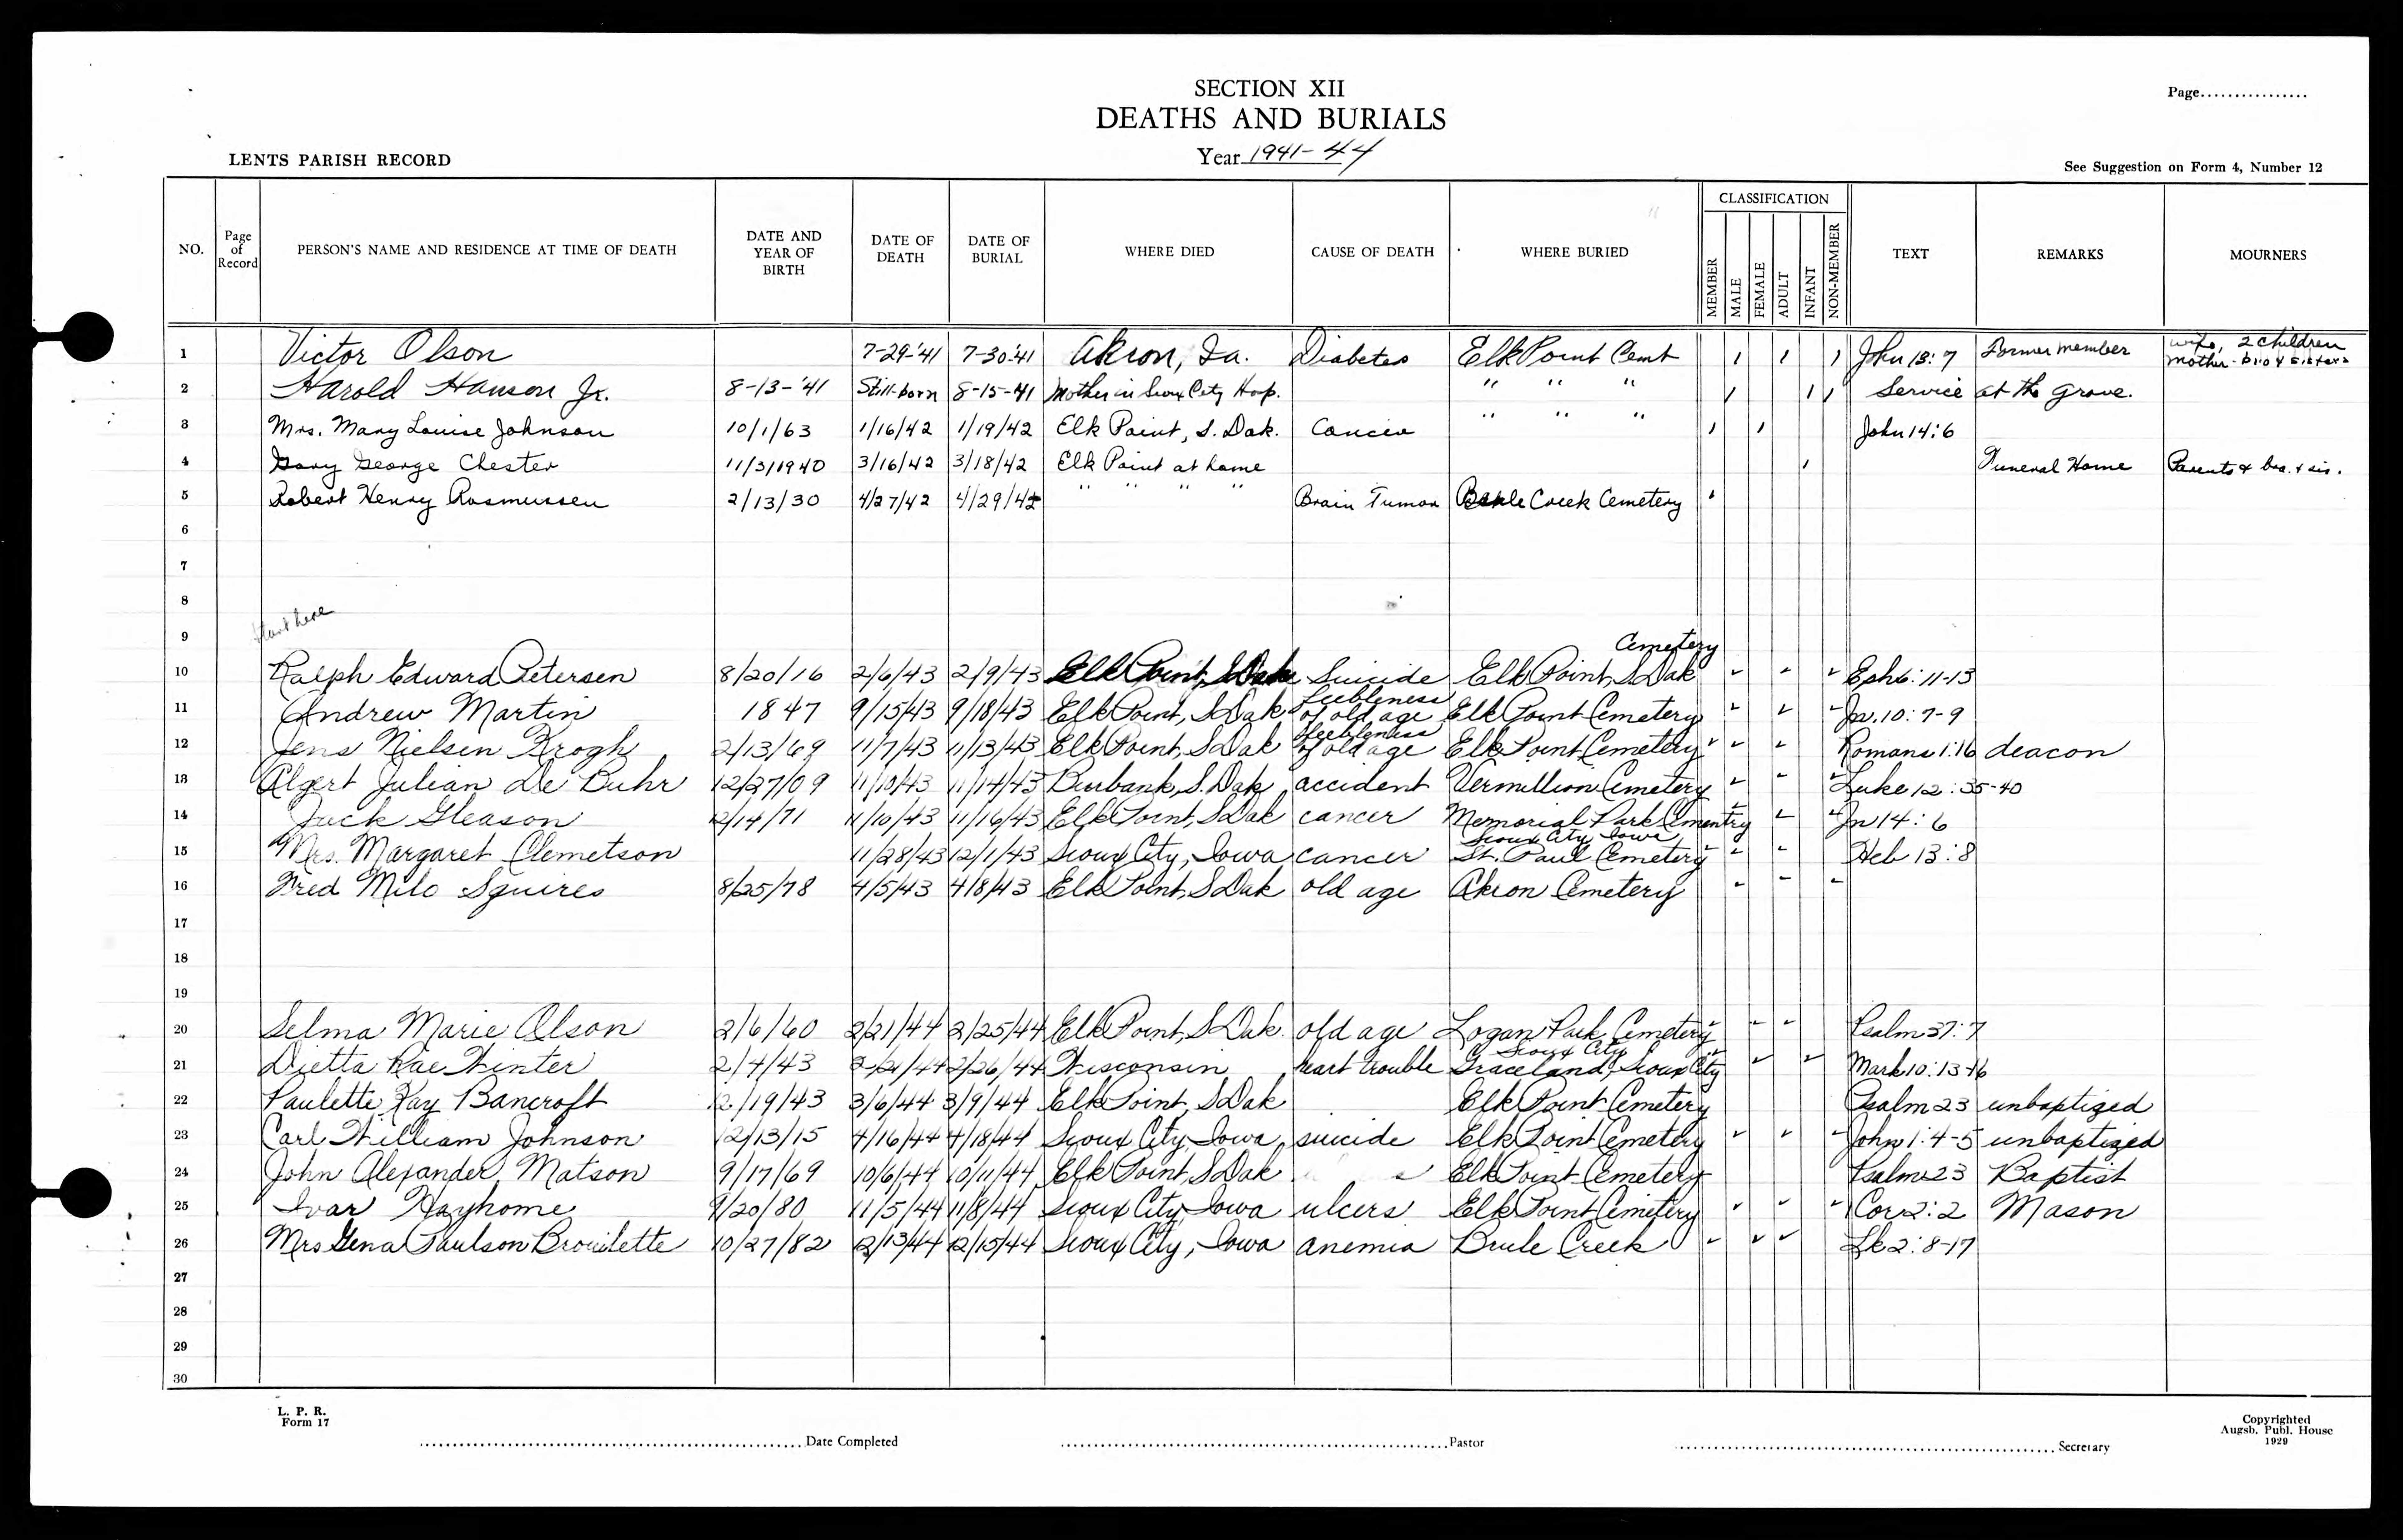 SECTION XII
Page................
DEATHS AND BURIALS
LENTS PARISH RECORD
Year 1941-44
See Suggestion on Form 4, Number 12
NO. Page of Record PERSON'S NAME AND RESIDENCE AT TIME OF DEATH DATE AND YEAR OF BIRTH DATE OF DEATH DATE OF BURIAL WHERE DIED CAUSE OF DEATH WHERE BURIED CLASSIFICATION MEMBER MALE FEMALE ADULT INFANT NON-MEMBER TEXT REMARKS MOURNERS
1 Victor Olson 7-29-'41 7-30-'41 Akron, Ia. Diabetes Elk Point Cemt John 13:7 Former member wife, 2 children mother - bro & sisters
2 Harold Hanson Jr. 8-13-'41 Still-born 8-15-41 Mother in Sioux City Hosp. " " " Service at the grave.
3 Mrs. Mary Louise Johnson 10/1/63 1/16/42 1/19/42 Elk Point, S. Dak. Cancer " " " John 14:6
4 Gary George Chester 11/3/1940 3/16/42 3/18/42 Elk Point at home Funeral Home Parents & bro. & sis.
5 Robert Henry Rasmussen 2/13/30 4/27/42 4/29/42 " " " " Brain Tumor Creek Cemetery
6
7
8
9 Start here
10 Ralph Edward Petersen 8/20/16 2/6/43 2/9/43 Elk Point, S Dak Suicide Elk Point, S Dak Cemetery Eph 6:11-13
11 Andrew Martin 1847 9/15/43 9/18/43 Elk Point, S Dak feebleness of old age Elk Point Cemetery Jn. 10:7-9
12 Jens Nielsen Krogh 2/13/69 11/7/43 11/13/43 Elk Point, S Dak feebleness of old age Elk Point Cemetery Romans 1:16 deacon
13 Algert Julian De Buhr 12/27/09 11/10/43 11/14/43 Burbank, S. Dak accident Vermillion Cemetery Luke 12:35-40
14 Jack Gleason 12/14/71 11/10/43 11/16/43 Elk Point, S Dak cancer Memorial Park Cementry Sioux City Iowa Jn 14:6
15 Mrs. Margaret Clemetson 11/28/43 12/1/43 Sioux City, Iowa cancer St. Paul Cemetery Heb 13:8
16 Fred Milo Squires 8/25/78 4/5/43 4/8/43 Elk Point, S Dak old age Akron Cemetery
17
18
19
20 Selma Marie Olson 2/6/60 2/21/44 2/25/44 Elk Point, S Dak. old age Logan Park Cemetery Sioux City Psalm 37:7
21 Dietta Rae Winter 2/4/43 2/26/44 Wisconsin heart trouble Graceland, Sioux City Mark 10:13-16
22 Paulette Kay Bancroft 12/19/43 3/6/44 3/9/44 Elk Point, S Dak Elk Point Cemetery Psalm 23 unbaptized
23 Carl William Johnson 12/13/15 4/16/44 4/18/44 Sioux City, Iowa suicide Elk Point Cemetery John 1:4-5 unbaptized
24 John Alexander Matson 9/17/69 10/6/44 10/11/44 Elk Point, S Dak Elk Point Cemetery Psalm 23 Baptist
25 Ivar Hayhome 9/20/80 11/5/44 11/8/44 Sioux City, Iowa ulcers Elk Point Cemetery I Cor 2:2 Mason
26 Mrs Gena Paulson Brouilette 10/27/82 12/13/44 12/15/44 Sioux City, Iowa anemia Brule Creek Lk 2:8-17
27
28
29
30
L. P. R.
Form 17
Date Completed Pastor Secretary
Copyrighted
Augsb. Publ. House
1929